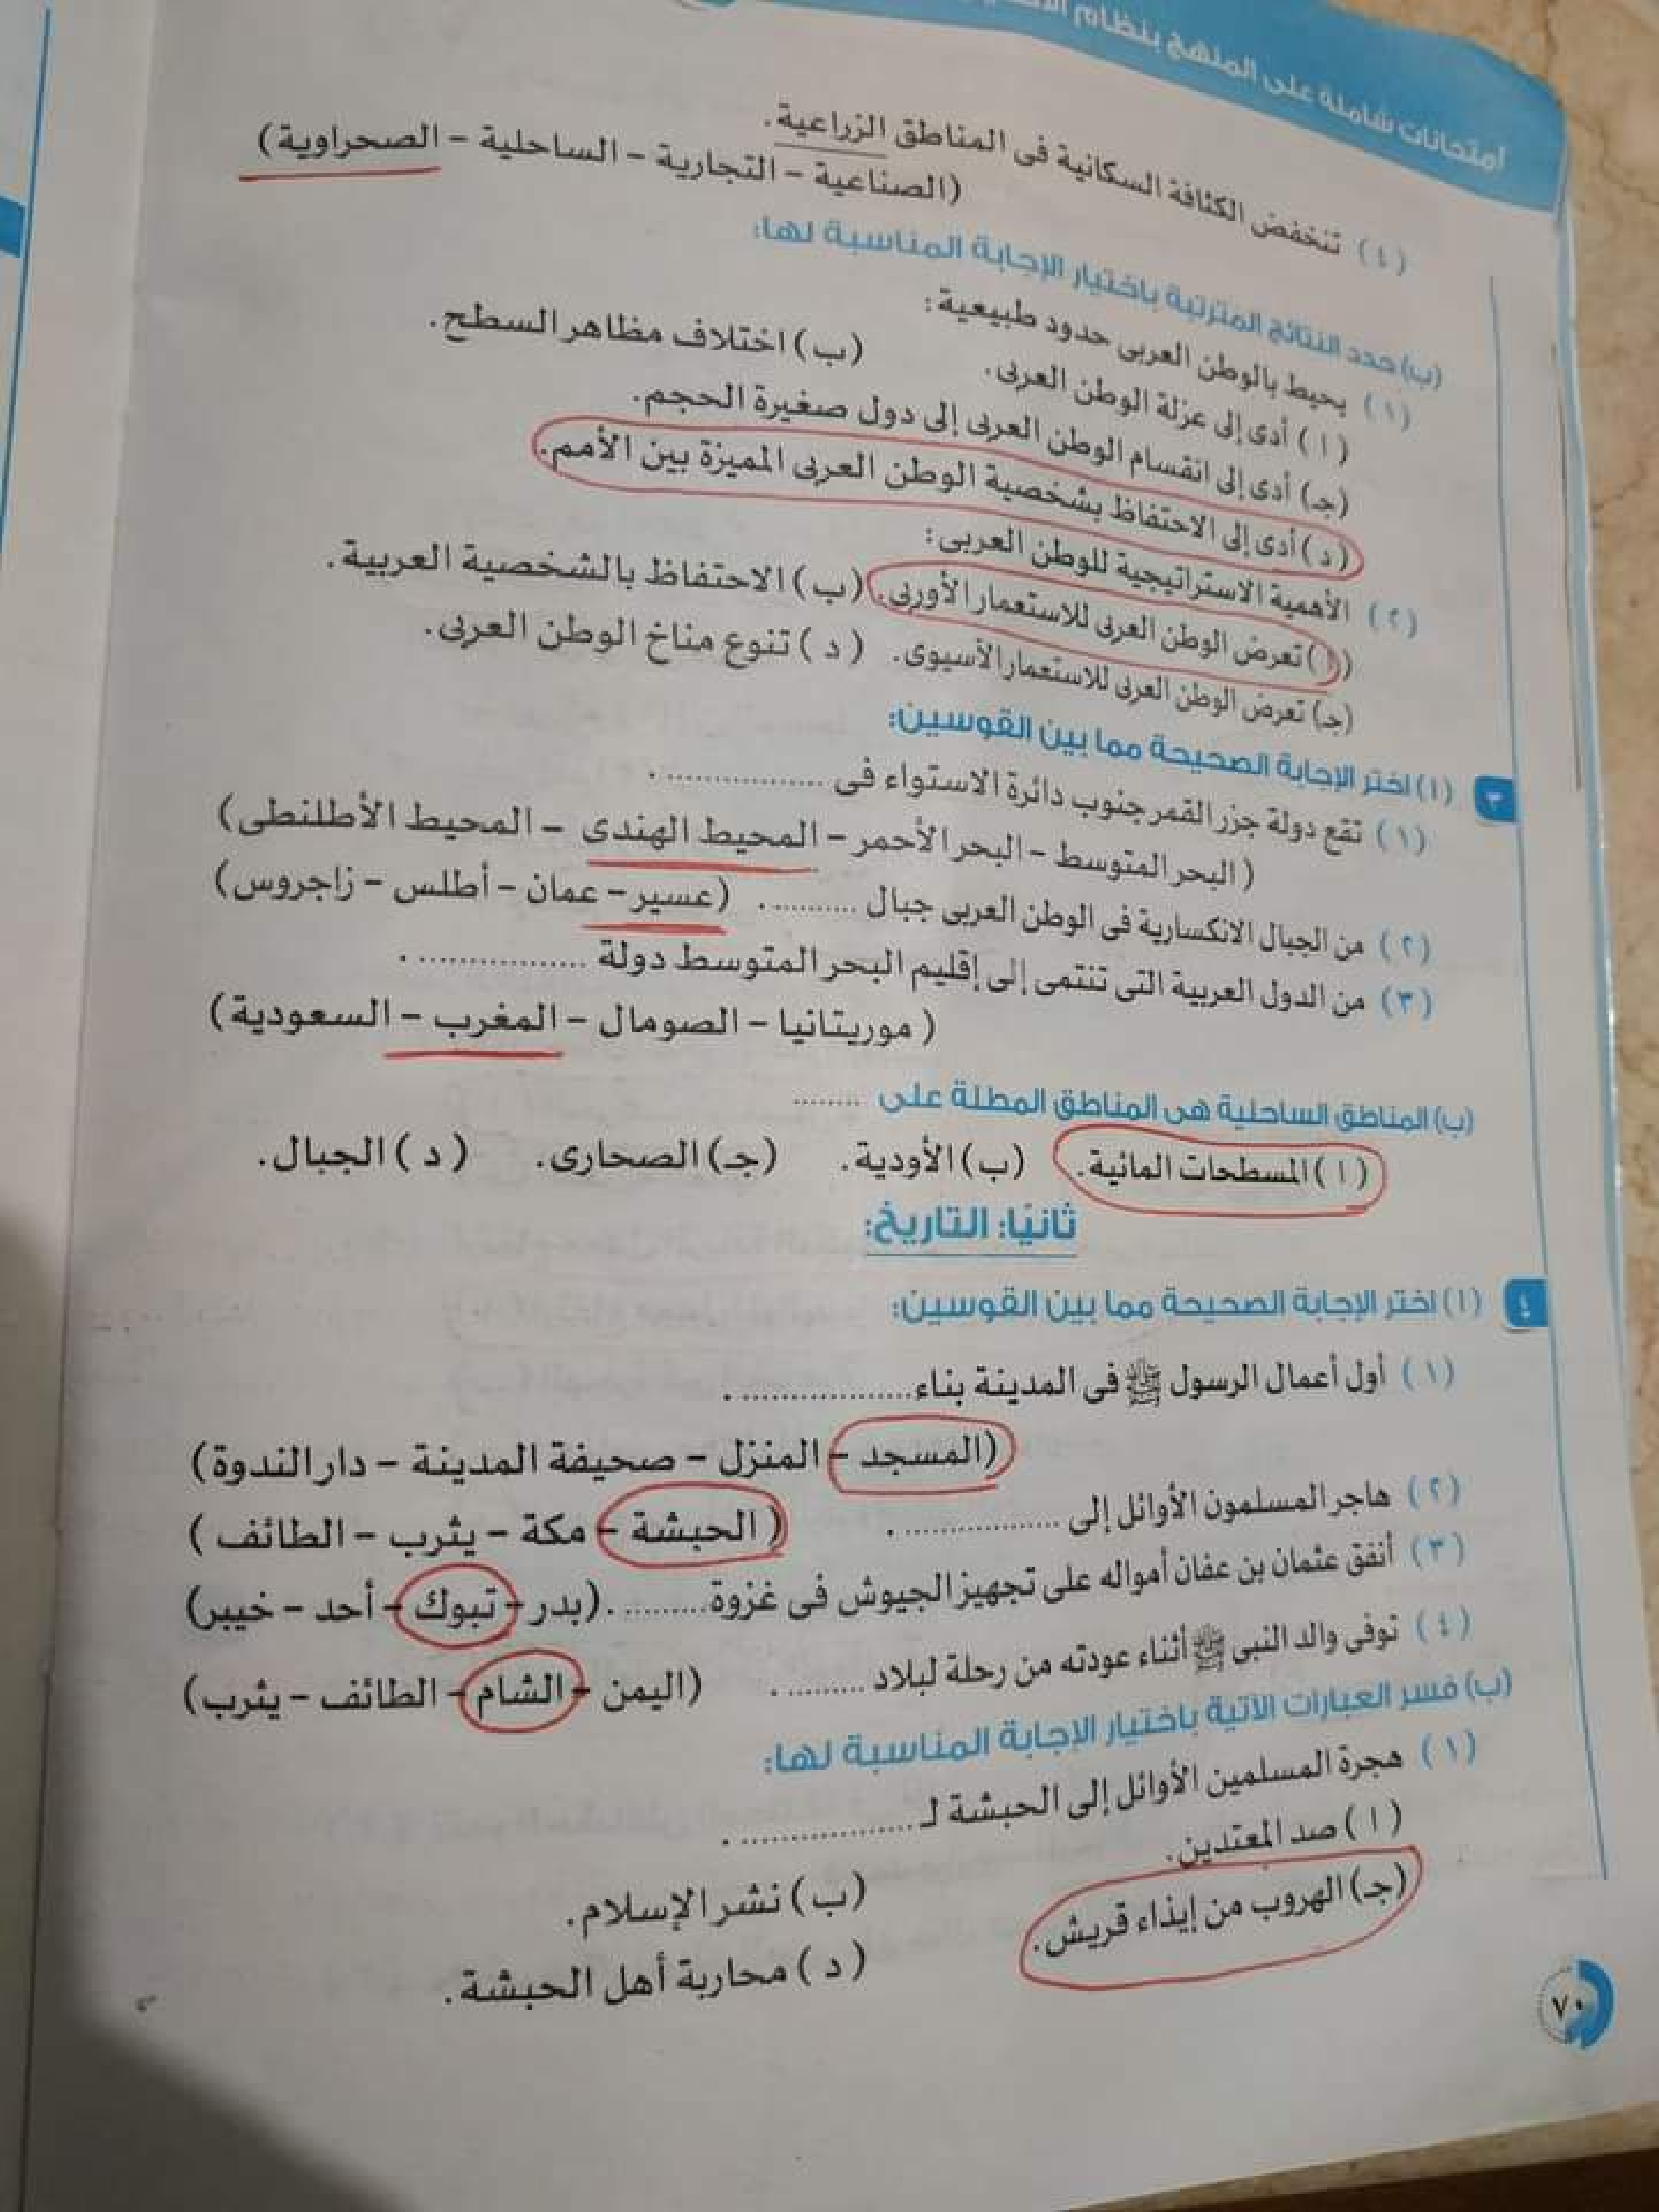 امتحانات شاملة على المنهج بنظام
(٤) تنخفض الكثافة السكانية فى المناطق الزراعية.
(الصناعية - التجارية - الساحلية - الصحراوية)
(ب) حدد النتائج المترتبة باختيار الإجابة المناسبة لها:
(١) يحيط بالوطن العربى حدود طبيعية:
(ا) أدى إلى عزلة الوطن العربى. (ب) اختلاف مظاهر السطح.
(جـ) أدى إلى انقسام الوطن العربى إلى دول صغيرة الحجم.
(د) أدى إلى الاحتفاظ بشخصية الوطن العربى المميزة بين الأمم.
(٢) الأهمية الاستراتيجية للوطن العربى:
(ا) تعرض الوطن العربى للاستعمار الأوربى. (ب) الاحتفاظ بالشخصية العربية.
(جـ) تعرض الوطن العربى للاستعمار الأسيوى. (د) تنوع مناخ الوطن العربى.
٣ (ا) اختر الإجابة الصحيحة مما بين القوسين:
(١) تقع دولة جزر القمر جنوب دائرة الاستواء فى ................. .
(البحر المتوسط - البحر الأحمر - المحيط الهندى - المحيط الأطلنطى)
(٢) من الجبال الانكسارية فى الوطن العربى جبال .......... . (عسير - عمان - أطلس - زاجروس)
(٣) من الدول العربية التى تنتمى إلى إقليم البحر المتوسط دولة ................. .
(موريتانيا - الصومال - المغرب - السعودية)
(ب) المناطق الساحلية هى المناطق المطلة على ........
(ا) المسطحات المائية. (ب) الأودية. (جـ) الصحارى. (د) الجبال.
ثانيًا: التاريخ:
٤ (ا) اختر الإجابة الصحيحة مما بين القوسين:
(١) أول أعمال الرسول ﷺ فى المدينة بناء ................. .
(المسجد - المنزل - صحيفة المدينة - دار الندوة)
(٢) هاجر المسلمون الأوائل إلى ................ . (الحبشة - مكة - يثرب - الطائف)
(٣) أنفق عثمان بن عفان أمواله على تجهيز الجيوش فى غزوة ......... . (بدر - تبوك - أحد - خيبر)
(٤) توفى والد النبى ﷺ أثناء عودته من رحلة لبلاد ......... . (اليمن - الشام - الطائف - يثرب)
(ب) فسر العبارات الآتية باختيار الإجابة المناسبة لها:
(١) هجرة المسلمين الأوائل إلى الحبشة لـ ................. .
(ا) صد المعتدين. (ب) نشر الإسلام.
(جـ) الهروب من إيذاء قريش. (د) محاربة أهل الحبشة.
٧٠